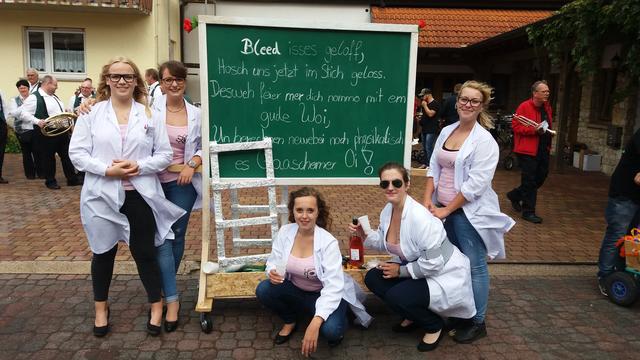 Bleed isses geloff,
Hosch uns jetzt im Stich geloss.
Desweh feier mer dich nommo mit em
gude Woi,
Un newebei noch physikalisch
es Oi!